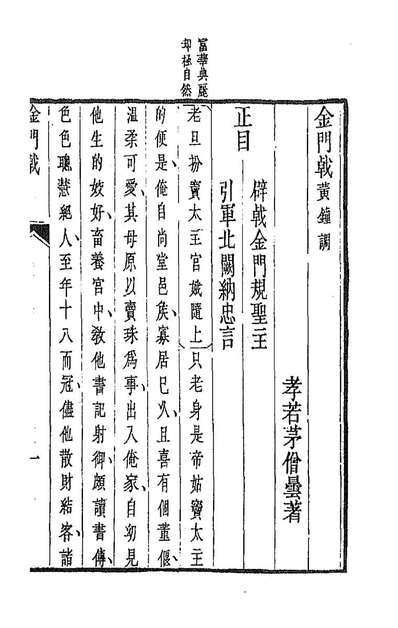 富華典麗
却極自然
金門戟黃鐘調
孝若茅僧曇著
正目
辟戟金門規聖主
引軍北闕納忠言
老旦扮竇太主官娥隨上只老身是帝姑竇太主
的便是俺自尚堂邑矦寡居已久且喜有個董偃
温柔可愛其母原以賣珠爲事出入俺家自㓜見
他生的姣好畜養宫中敎他書記射御頗讀書傳
色色聰慧絕人至年十八而冠儘他散財結客諧
金門戟
一